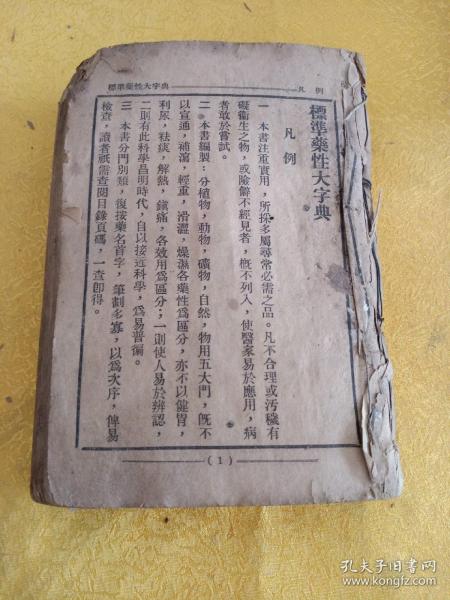 標準藥性大字典
凡例
標準藥性大字典
凡例
一 本書注重實用，所採多屬尋常必需之品。凡不合理或汚穢有
礙衞生之物，或險僻不經見者，槪不列入，使醫家易於應用，病
者敢於嘗試。
二 本書編製：分植物，動物，礦物，自然，物用五大門，旣不
以宣通，補瀉，輕重，滑澀，燥濕各藥性爲區分，亦不以健胃，
利尿，祛痰，解熱，鎭痛，各效用爲區分；一則使人易於辨認，
二則有此科學昌明時代，自以接近科學，爲易普徧。
三 本書分門別類，復按藥名首字，筆劃多寡，以爲次序，俾易
檢查，讀者祇需查閱目錄頁碼，一查卽得。
(1)
孔夫子旧书网
www.kongfz.com